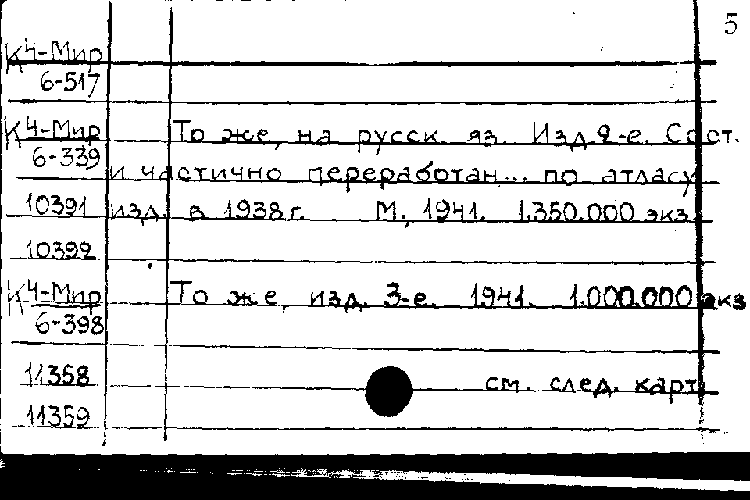 5
К4-Мир
6-517
К4-Мир То же, на русск. яз. Изд. 2-е. Сост.
6-339 и частично переработан... по атласу
10391 изд. в 1938 г. М., 1941. 1.350.000 экз.
10392
К4-Мир То же, изд. 3-е. 1941. 1.000.000 экз
6-398
11358 см. след. карт.
11359